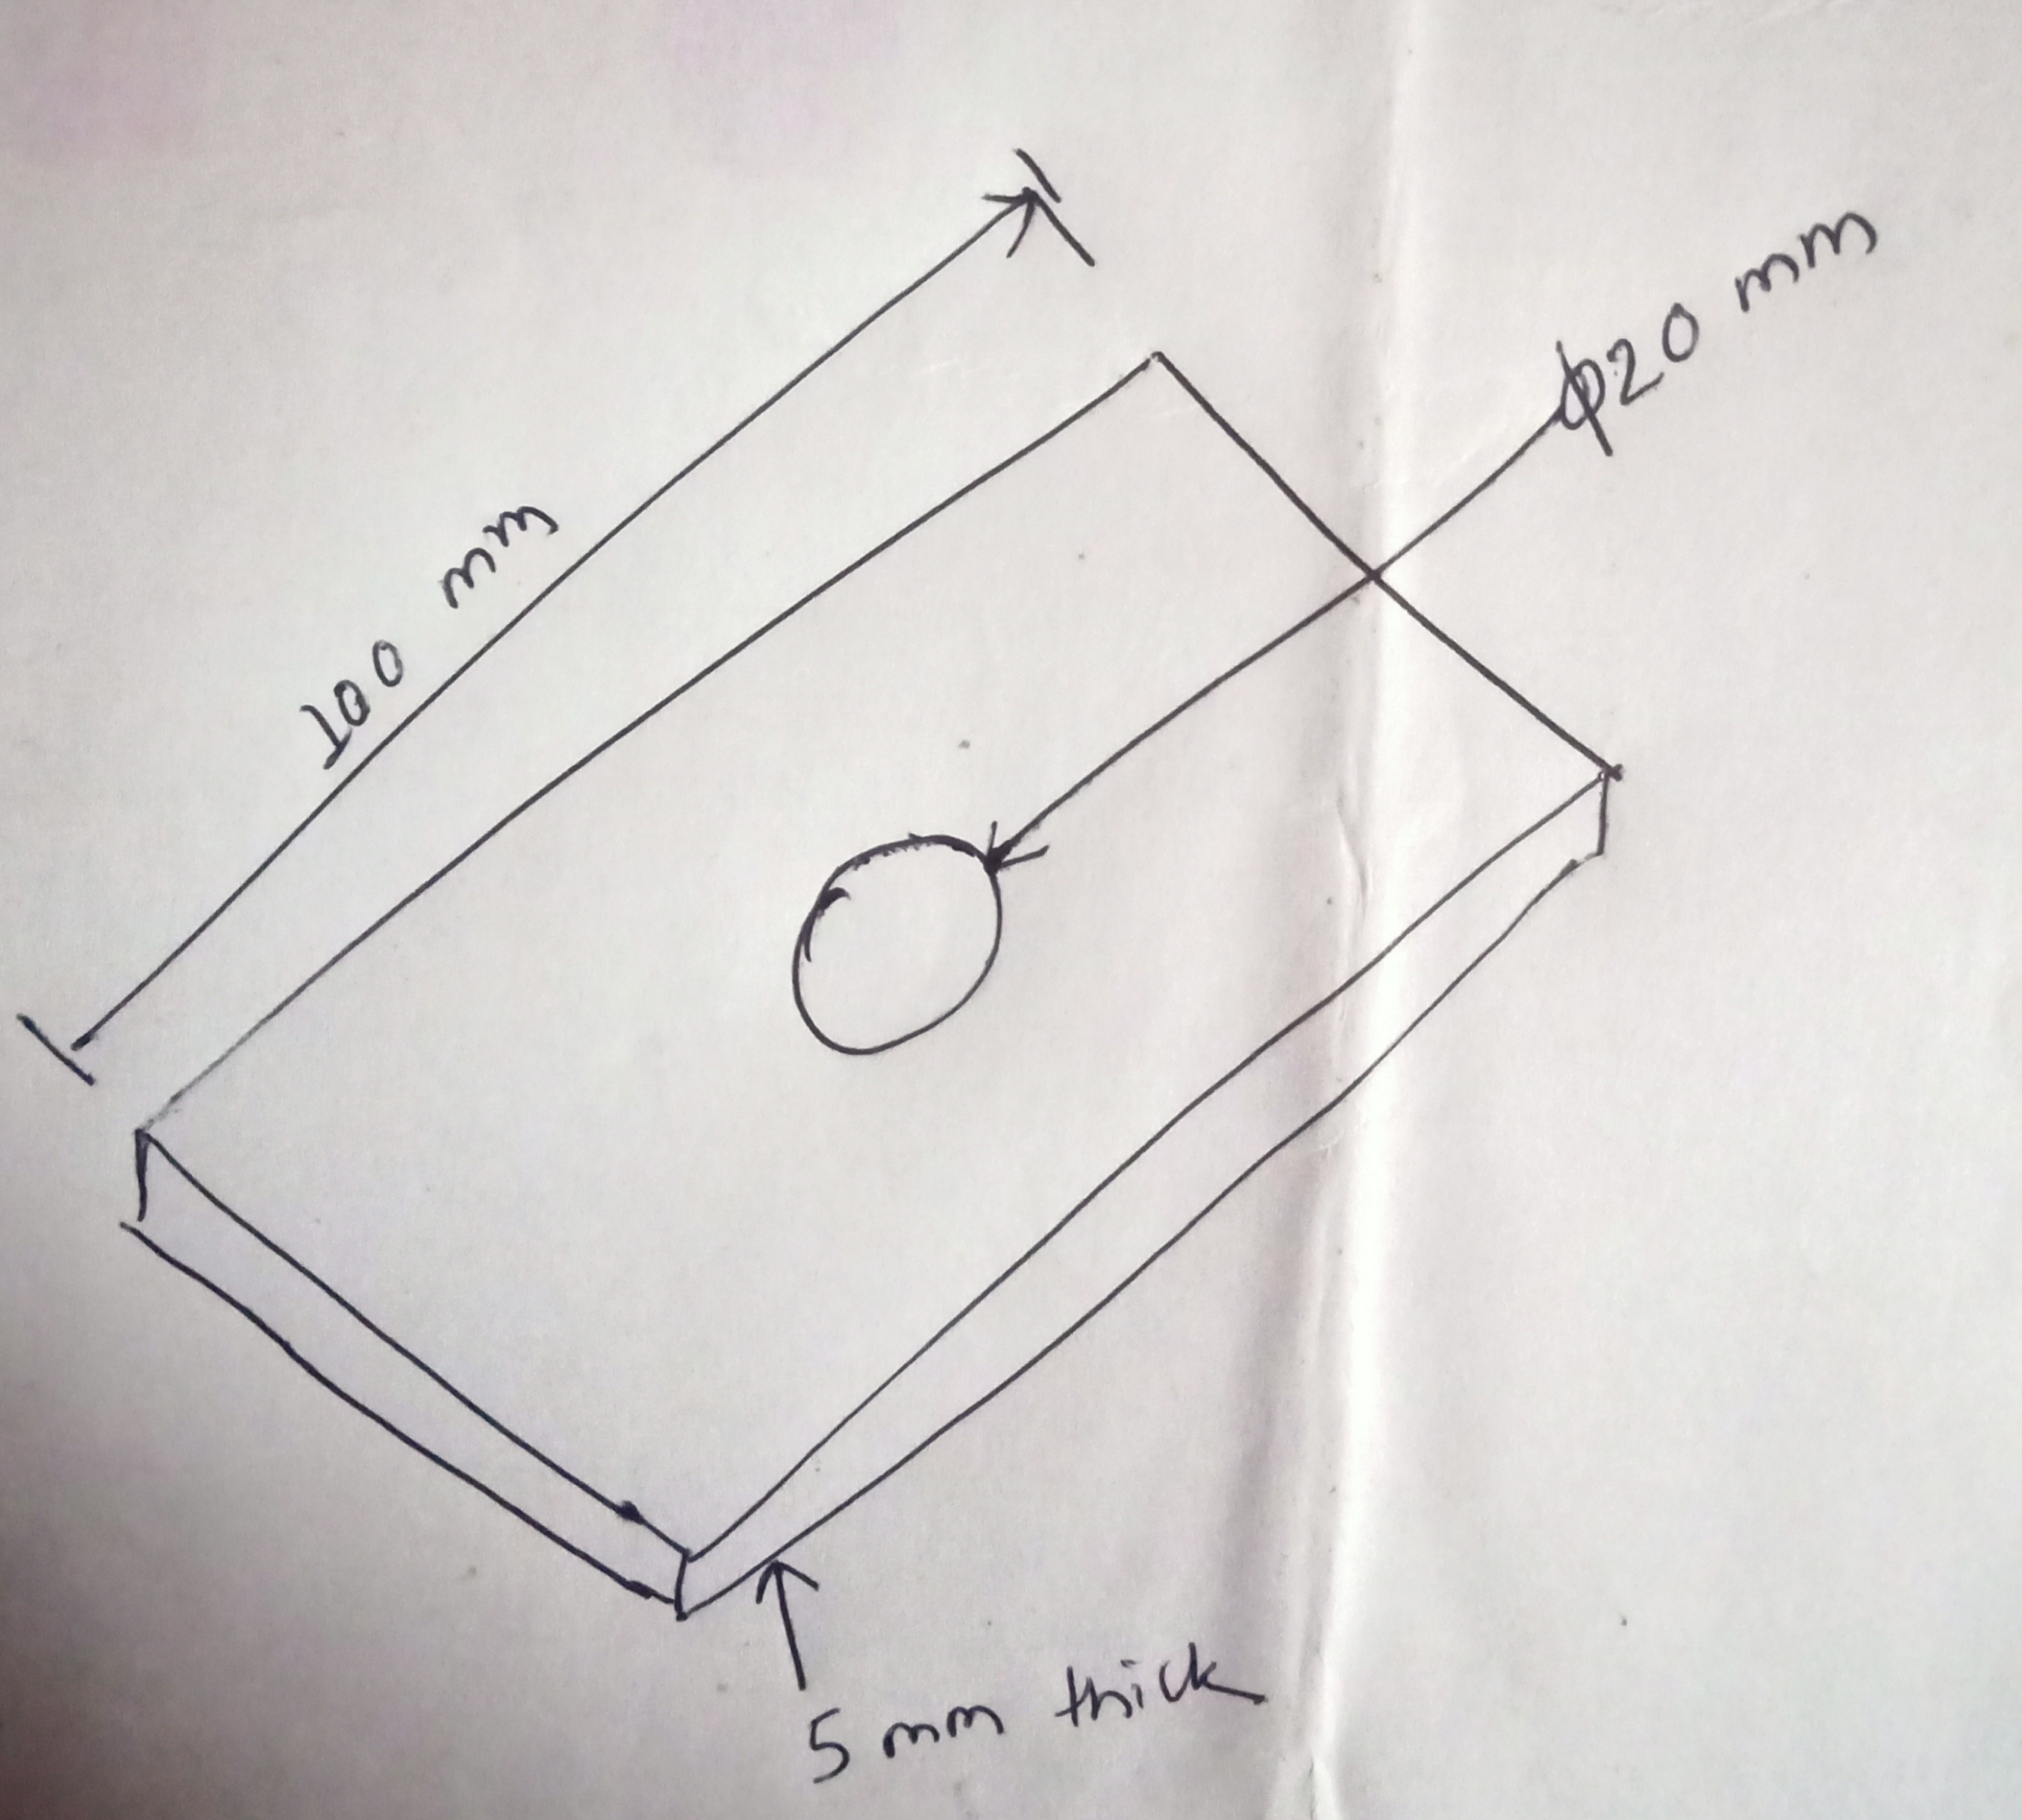 100 mm
ϕ20 mm
5 mm thick